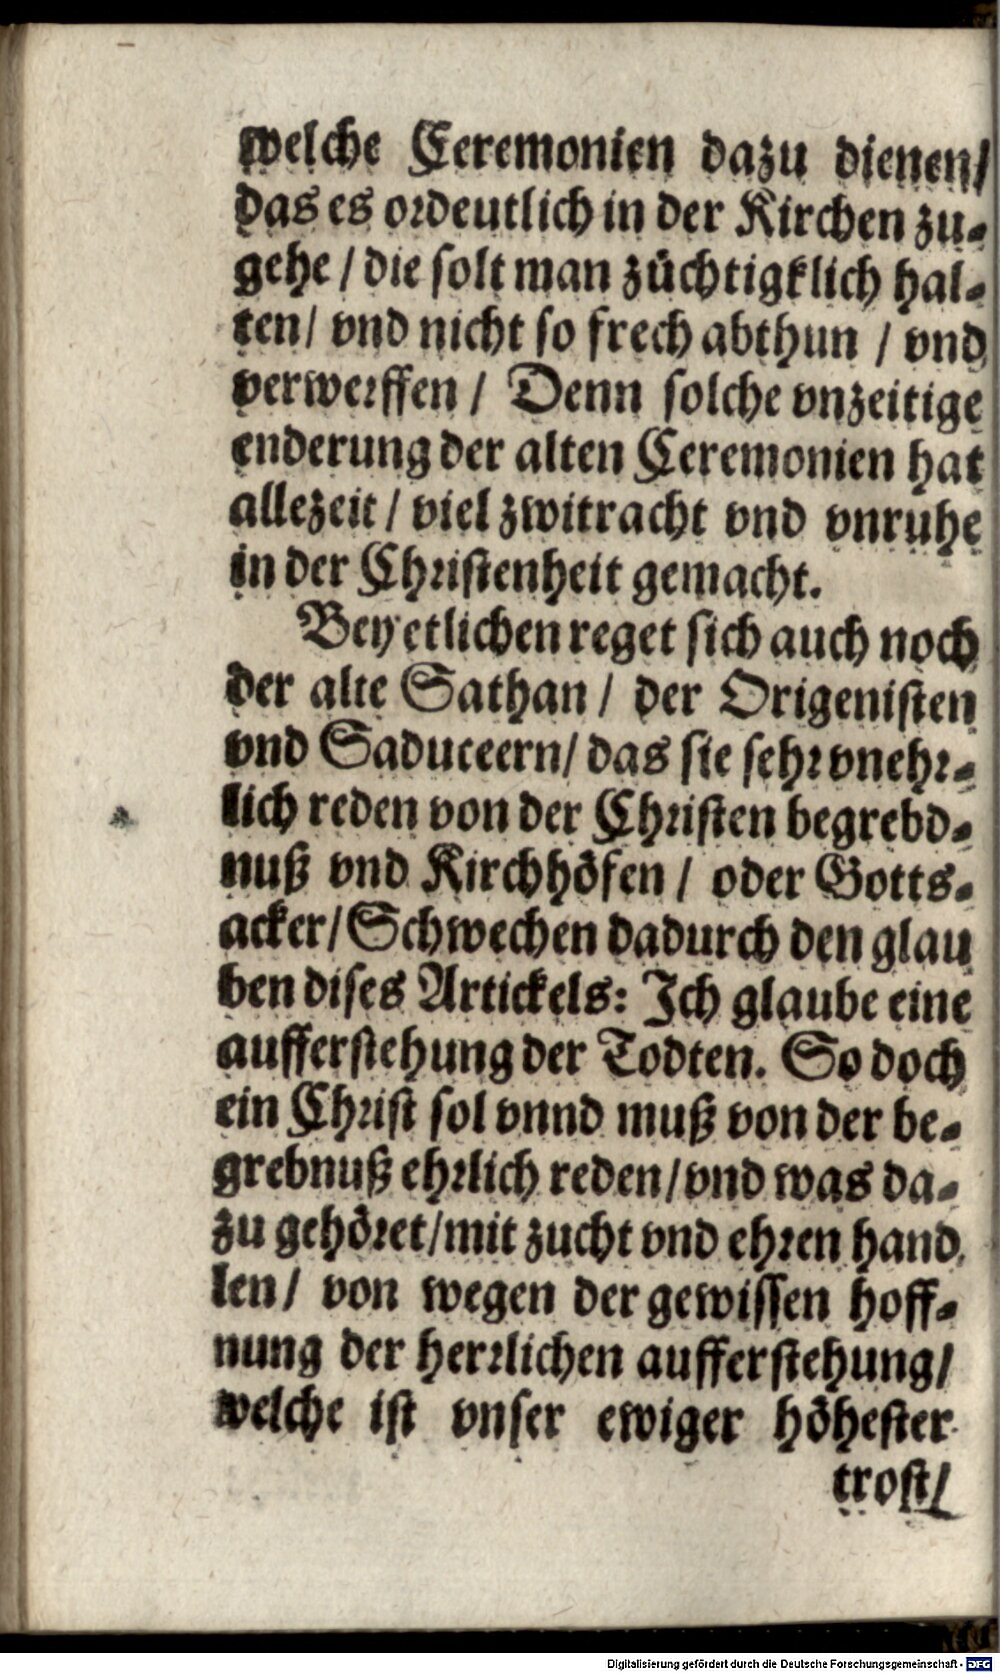 welche Ceremonien dazu dienen/
das es ordeutlich in der Kirchen zu-
gehe / die solt man züchtigklich hal-
ten/ vnd nicht so frech abthun / vnd
verwerffen / Denn solche vnzeitige
enderung der alten Ceremonien hat
allezeit / viel zwitracht vnd vnruhe
in der Christenheit gemacht.
Bey etlichen reget sich auch noch
der alte Sathan / der Origenisten
vnd Saduceern/ das sie sehr vnehr-
lich reden von der Christen begrebd-
nuß vnd Kirchhöfen / oder Gotts-
acker/ Schwechen dadurch den glau
ben dises Artickels: Ich glaube eine
aufferstehung der Todten. So doch
ein Christ sol vnnd muß von der be-
grebnuß ehrlich reden/ vnd was da-
zu gehöret/ mit zucht vnd ehren hand
len/ von wegen der gewissen hoff-
nung der herrlichen aufferstehung/
welche ist vnser ewiger höhester
trost/
Digitalisierung gefördert durch die Deutsche Forschungsgemeinschaft - DFG